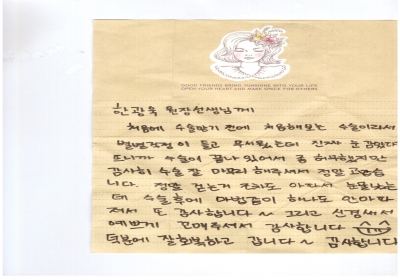 GOOD FRIENDS BRING SUNSHINE INTO YOUR LIFE.
OPEN YOUR HEART AND MAKE SPACE FOR OTHERS.
한광욱 원장선생님께
처음에 수술받기 전에 처음해보는 수술이라서
별별걱정이 들고 무서웠는데 진짜 눈 감았다
뜨니까 수술이 끝나 있어서 좀 허무했지만
감사히 수술 잘 마무리 해주셔서 정말 고맙습
니다. 정말 걷는거 조차도 아파서 눈물났는
데 수술후에 마법같이 하나도 안아파
져서 또 감사합니다~ 그리고 신경써서
예쁘게 꼬매주셔서 감사합니다
덕분에 잘 회복하고 갑니다~ 감사합니다